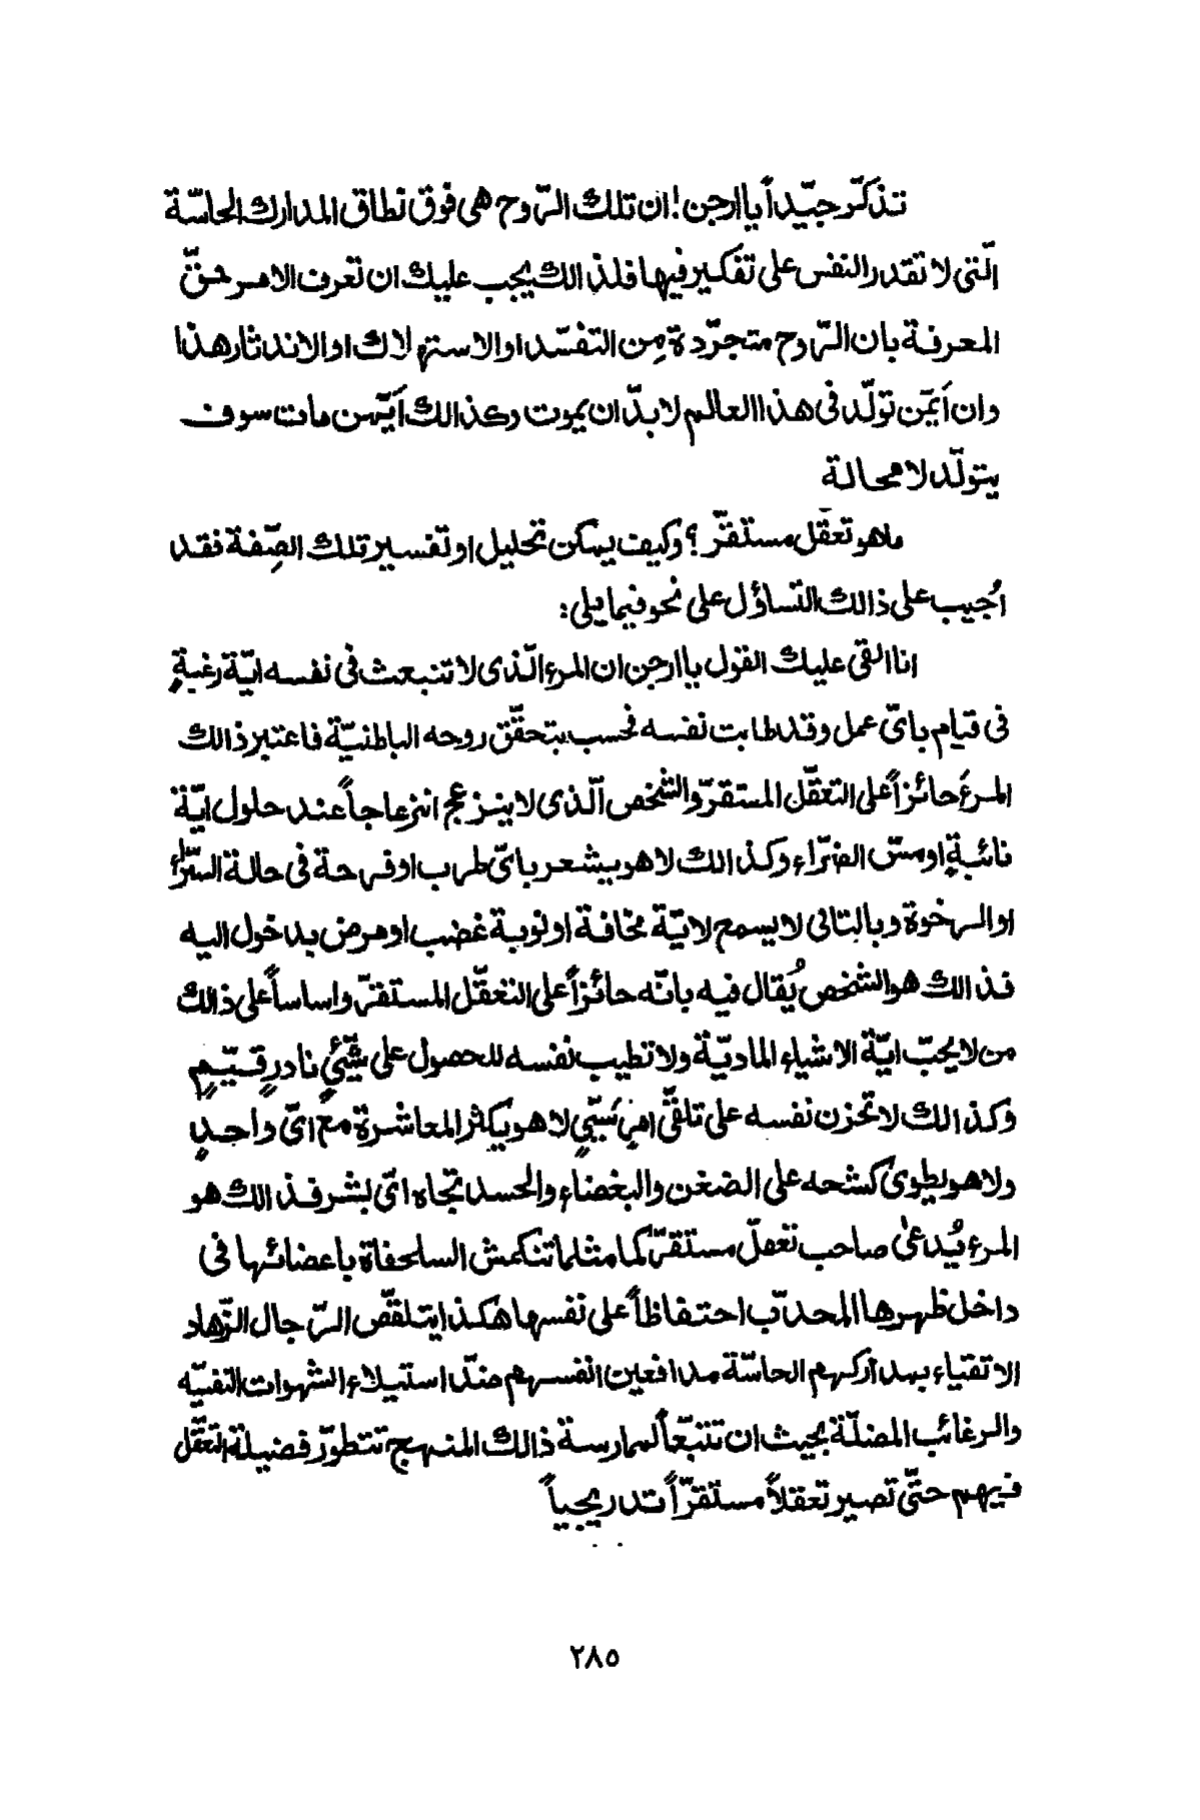 تذكّر جيّداً يا ارجن! ان تلك الرّوح هى فوق نطاق المدارك الحاسّة
الّتى لا تقدر النفس على تفكير فيها فلذالك يجب عليك ان تعرف الامر حقّ
المعرفة بان الرّوح متجرّدة مِن التفسّد او الاستهلاك او الاندثار هذا
وان أيمّن تولّد فى هذا العالم لا بدّ ان يموت وكذالك أيّمن مات سوف
يتولّد لا محالة
ماهو تعقّل مستقرّ؟ وكيف يمكن تحليل او تفسير تلك الصِّفة فقد
اُجيب على ذالك التساؤل على نحو فيما يلى:
انا القى عليك القول يا ارجن ان المرء الّذى لا تنبعث فى نفسه ايّة رغبةٍ
فى قيام باىّ عمل وقد طابت نفسه فحسب بتحقّق روحه الباطنيّة فاعتبر ذالك
المرءَ حائزاً على التعقّل المستقرّ والشّخص الّذى لا ينزعج انزعاجاً عند حلول ايّة
نائبةٍ او مسّ الضرّاء وكذالك لا هو يشعر باىّ طرب او فرحة فى حالة السّرّاء
او الرخوة وبالتالى لا يسمع لايّة مخافة او نوبة غضب او مرض بدخول اليه
فذالك هو الشّخص يُقال فيه بانّه حائزاً على التعقّل المستقرّ واساساً على ذالك
من لا يحبّ ايّة الاشياء الماديّة ولا تطيب نفسه للحصول على شيّئٍ نادرٍ قيّمٍ
وكذالك لا تحزن نفسه على تلقّى امرٍ سَيّىٍ لا هو يكثر المعاشرة مع اىّ واحدٍ
ولا هو يطوى كشحه على الضغن والبغضاء والحسد تجاه اىّ بشر فذالك هو
المرء يُدعىٰ صاحب تعقلّ مستقرّ كما مثلما تنكمش السلحفاة باعضائها فى
داخل ظهرها المحدّب احتفاظاً على نفسها هكذا يتقلّص الرّجال الزّهاد
الاتقياء بمداركهم الحاسّة مدافعين انفسهم ضدّ استيلاء الشهوات النفسيّه
والرغائب المضلّة بحيث ان تتبّعاً لممارسة ذالك المنهج تتطوّر فضيلة التعقّل
فيهم حتّى تصير تعقلاً مستقرّاً تدريجياً
٢٨٥